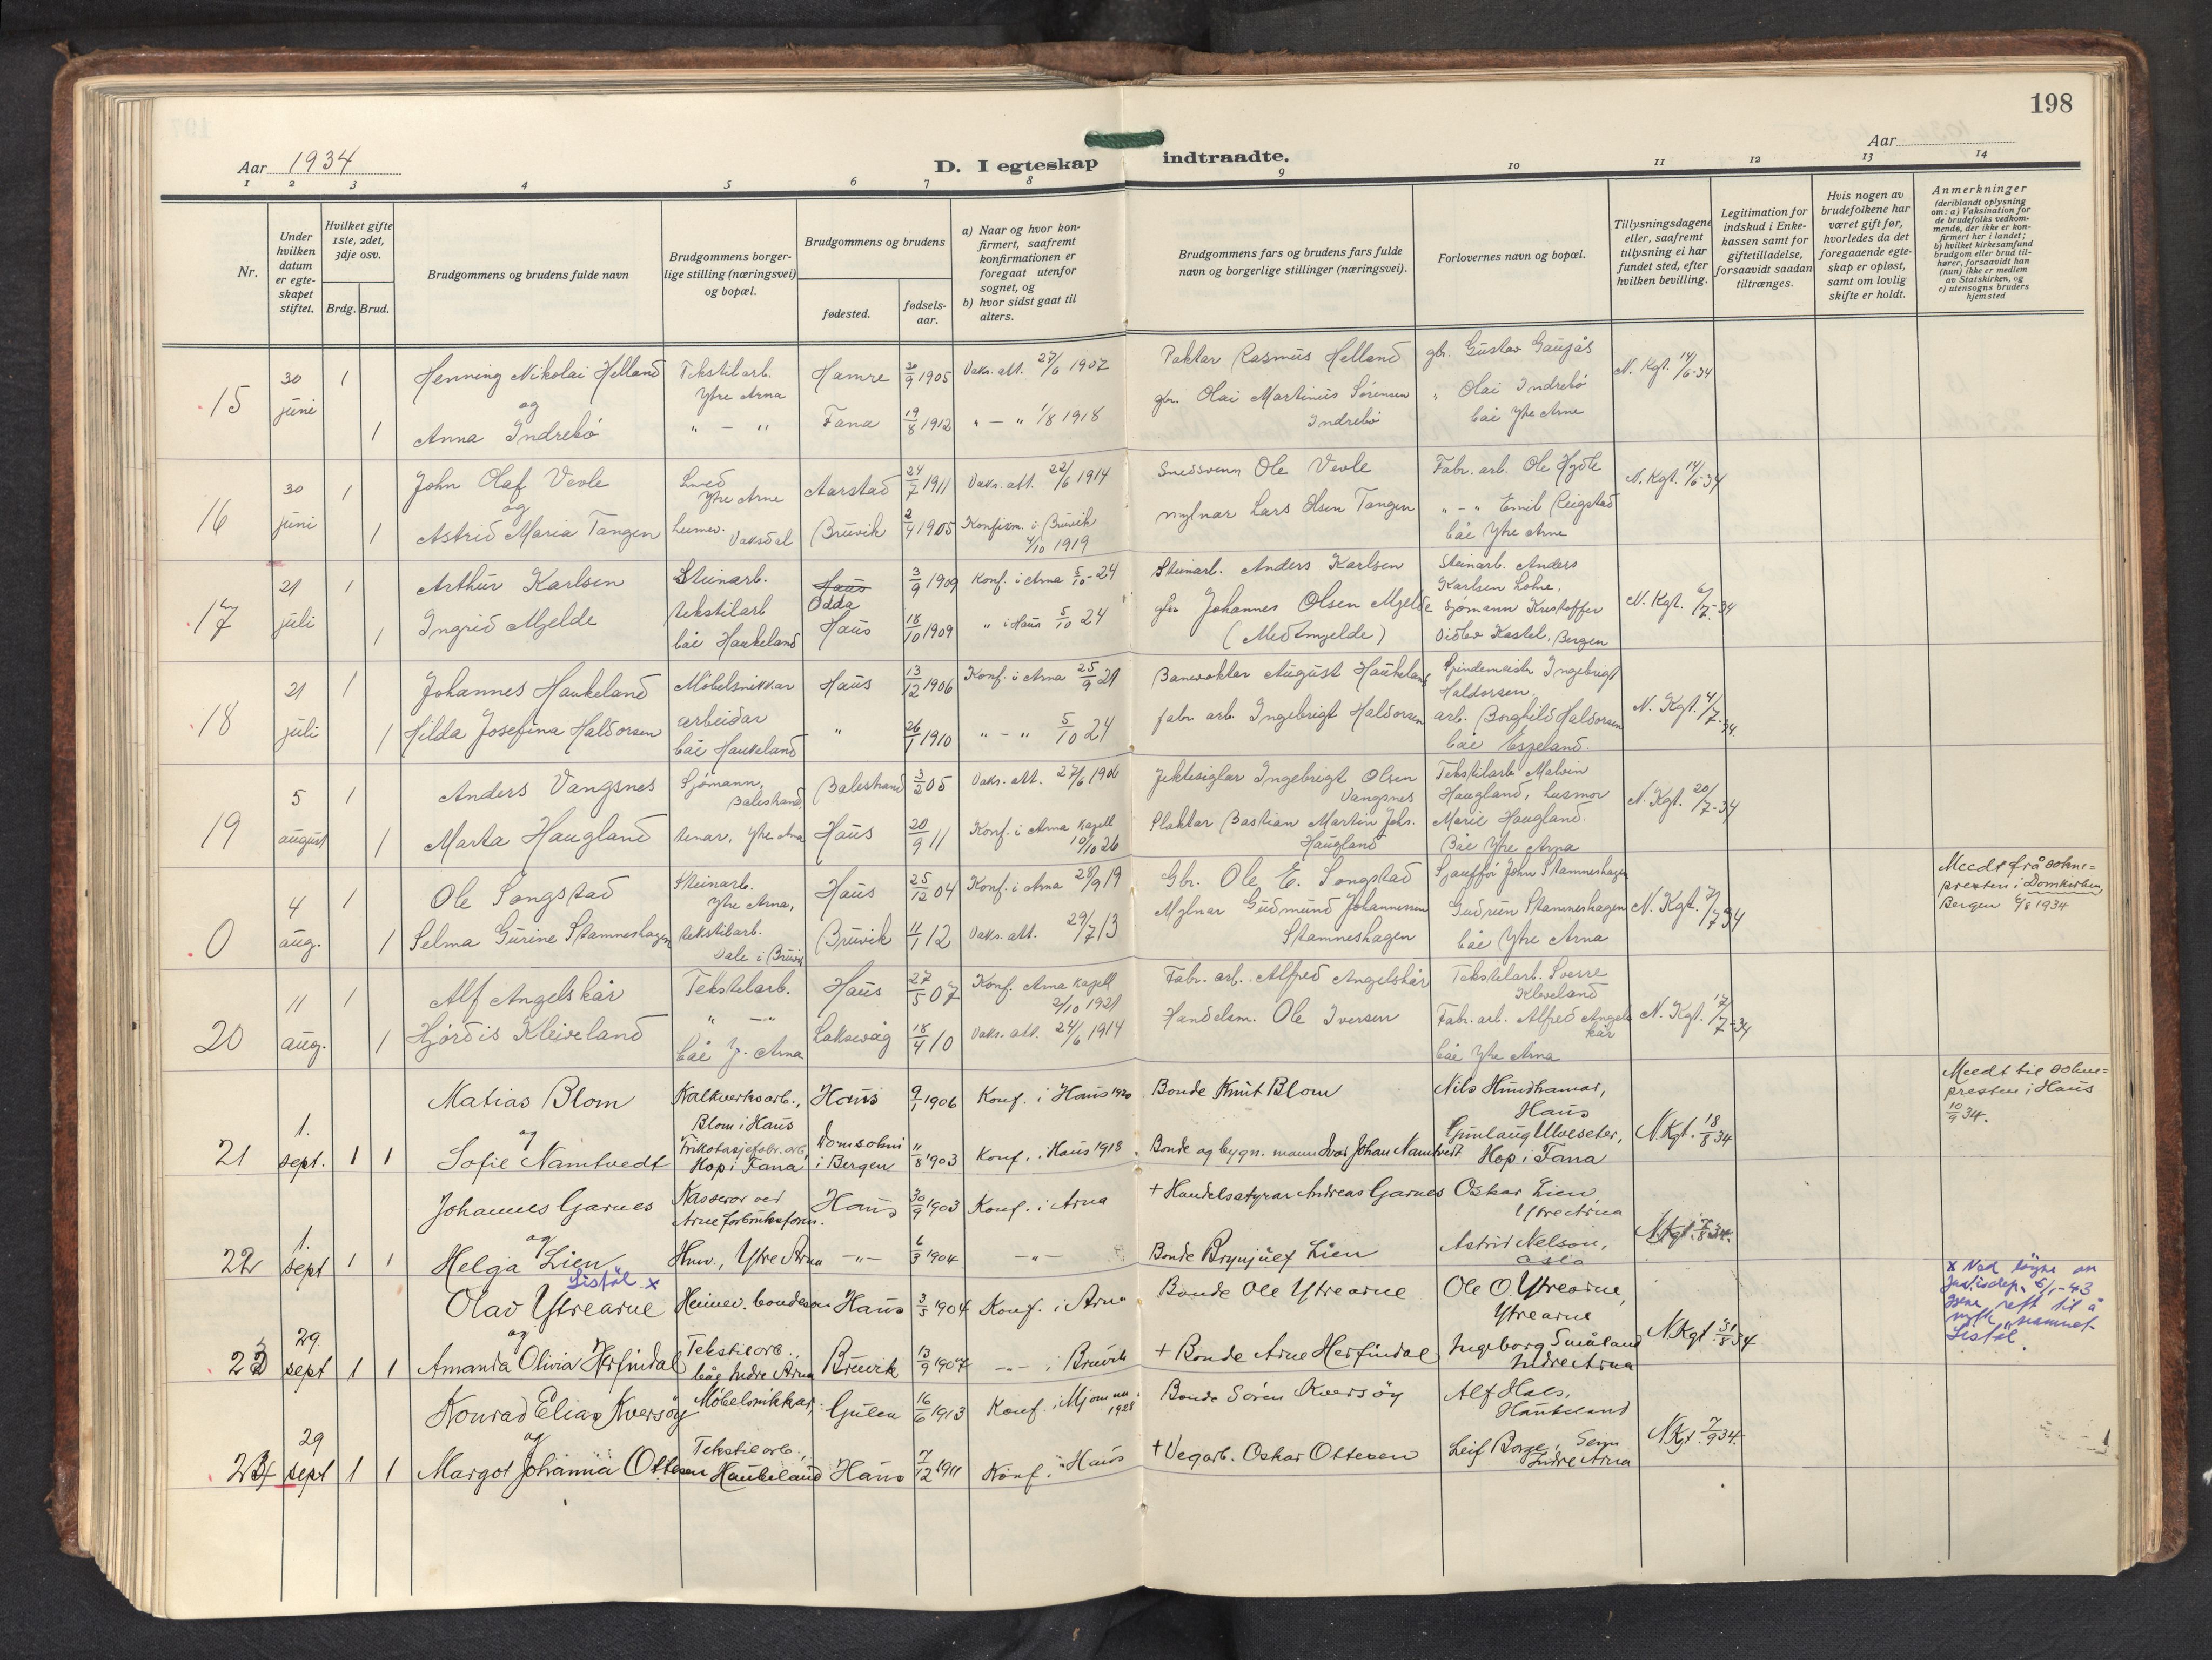 198
Aar 1934
D. I egteskap indtraadte.
Aar
1 2 3 4 5 6 7 8 9 10 11 12 13 14
Nr.
Under hvilken datum er egte-skapet stiftet.
Hvilket gifte 1ste, 2det, 3dje osv.
Brdg. Brud.
Brudgommens og brudens fulde navn
Brudgommens borger-lige stilling (næringsvei) og bopæl.
Brudgommens og brudens
fødested.
fødsels-aar.
a) Naar og hvor kon-firmert, saafremt konfirmationen er foregaat utenfor sognet, og
b) hvor sidst gaat til alters.
Brudgommens fars og brudens fars fulde navn og borgerlige stillinger (næringsvei).
Forlovernes navn og bopæl.
Tillysningsdagene eller, saafremt tullysning ei har fundet sted, efter hvilken bevilling.
Legitimation for indskud i Enke-kassen samt for giftetilladelse, forsaavidt saadan tiltrænges.
Hvis nogen av brudefolkene har været gift før, hvorledes da det foregaaende egte-skap er opløst, samt om lovlig skifte er holdt.
Anmerkninger (deriblandt oplysning om: a) Vaksination for de brudefolks vedkom-mende, der ikke er kon-firmert her i landet; b) hvilket kirkesamfund brudgom eller brud til-hører, forsaavidt han (hun) ikke er medlem av Statskirken, og c) utensogns bruders hjemsted
15 30 juni 1 Henning Nikolai Helland Tekstilarb. Ytre Arna Hamre 30/9 1905 Vaks. att. 27/6 1907 Paktar Rasmus Helland gbr. Gustav Gausås N. Kgt. 14/6-34
og
1 Anna Indrebö " - " Fana 19/8 1912 " - " 1/8 1918 gbr. Olai Martinus Sörensen Indrebö " Olai Indrebö båe Ytre Arne
16 30 juni 1 John Olaf Vevle Ytre Arne Aarstad 24/7 1911 Vaks. att. 22/6 1914 Snedsvenn Ole Vevle Fabr. arb. Ole Hydle N. Kgt. 14/6-34
og
1 Astrid Maria Tangen Heimev. Vaksdal Bruvik 2/4 1905 Konfirm. i Bruvik 4/10 1919 mylnar Lars Olsen Tangen " - " Emil Reigstad båe Ytre Arne
17 21 juli 1 Arthur Karlsen Steinarb. Haus Odda 3/9 1909 Konf. i Arna 5/10-24 Steinarb. Anders Karlsen Steinarb. Anders Karlsen Lohne. N. Kgt. 6/7-34
1 Ingrid Mjelde tekstilarb båe Haukeland Haus 18/10 1909 " i Haus 5/10 24 gbr Johannes Olsen Mjelde (Medtmjelde) Sjömann Kristoffer Vidlev Kastel, Bergen
18 21 juli 1 Johannes Haukeland Möbelsnikkar Haus 13/12 1906 Konf. i Arna 25/9 21 Banevaktar August Haukeland Spindemeister Ingebrigt Haldorsen. N. Kgt. 4/7-34
1 Hilda Josefina Haldorsen arbeidar båe Haukeland " 26/1 1910 " - " 5/10 24 fabr. arb. Ingebrigt Haldorsen arb. Borghild Haldorsen båe Espeland.
19 5 august 1 Anders Vangsnes Sjömann, Balestrand Balestrand 3/2 05 Vaks. att. 27/6 1906 Jektesiglar Ingebrigt Olsen Vangsnes Tekstilarb Malvin Haugland, husmor N. Kgt. 20/7-34
1 Marta Haugland tenar, Ytre Arna Haus 20/9 11 Konf. i Arna kapell 10/10 26 Plaktar Bastian Martin Johs. Haugland Marie Haugland. Båe Ytre Arna
0 4 aug. 1 Ole Songstad Steinarb. Ytre Arna, Haus 25/12 04 Konf. i Arna 28/9 19 Gbr. Ole E. Songstad Sjauffør John Stamneshagen N. Kgt. 7/7 34 Meedt frå sokne=presten i Domkirken Bergen 6/8 1934
1 Selma Gurine Stamneshagen tekstilarb. Dale i Bruvik Bruvik 11/1 12 Vaks. att. 29/7 13 Mylnar Gudmund Johannessen Stamneshagen Gudrun Stamneshagen båe Ytre Arna
20 11 aug. 1 Alf Angelskår Tekstilarb. Haus 27/5 07 Konf. Arna kapell 2/10 1921 Fabr. arb. Alfred Angelskår Tekstilarb. Sverre Kleveland N. Kgt. 17/7-34
1 Hjördis Kleiveland " - " båe Y. Arna Laksevåg 18/4 10 Vaks. att. 24/6 1914 Handelsm. Ole Iversen Fabr. arb. Alfred Angelskår båe Ytre Arna
21 1. sept. 1 1 Matias Blom Kalkverksarb., Blom i Haus Haus 9/1 1906 Konf. i Haus 1920 Bonde Knut Blom Nils Hundhamar, Haus N. Kgt. 18/8 34 Meedt til sokne=presten i Haus 10/9 34.
og
Sofie Namtvedt Trikotasjefabr. arb. Hop i Fana Domsokni i Bergen 11/8 1903 Konf. i Haus 1918 Bonde og bygn. mann Ivar Johan Namtvedt Gunlaug Ulveseter, Hop i Fana
22 1. sept 1 1 Johannes Garnes Kasserar ved Arne forbruksforen. Haus 30/9 1903 Konf. i Arna + Handelsstyrar Andreas Garnes Oskar Lien, Ytre Arna N. Kgt. 7/8 34.
og
Helga Lien Huv., Ytre Arna -"- 6/3 1904 -"- Bonde Brynjulf Lien Astrid Nelson, Oslo
Lisföl x
23 29. sept 1 1 Olav Ytrearne Heimev. bondeson Haus 3/5 1904 Konf. i Arna Bonde Ole Ytrearne Ole O. Ytrearne, Ytrearne N. Kgt. 31/8 34 x Ved löyve av justisdep. 5/1-43 gjeve rett til å nytte namnet Lisföl.
og
Amanda Olivia Herfindal Tekstilarb., båe Indre Arna Bruvik 13/9 1907 -"- i Bruvik + Bonde Arne Herfindal Ingeborg Småland Indre Arna
24 29 sept 1 1 Konrad Elias Kversöy Möbelsnikkar, Gulen 16/6 1913 Konf. i Mjömna 1928 Bonde Sören Kversöy Alf Hals, Haukeland N. Kgt. 7/9 34.
og
Margot Johanna Ottesen Tekstilarb., Haukeland Haus 7/12 1911 Konf. i Haus + Vegarb. Oskar Ottesen Leif Borge, Indre Arna